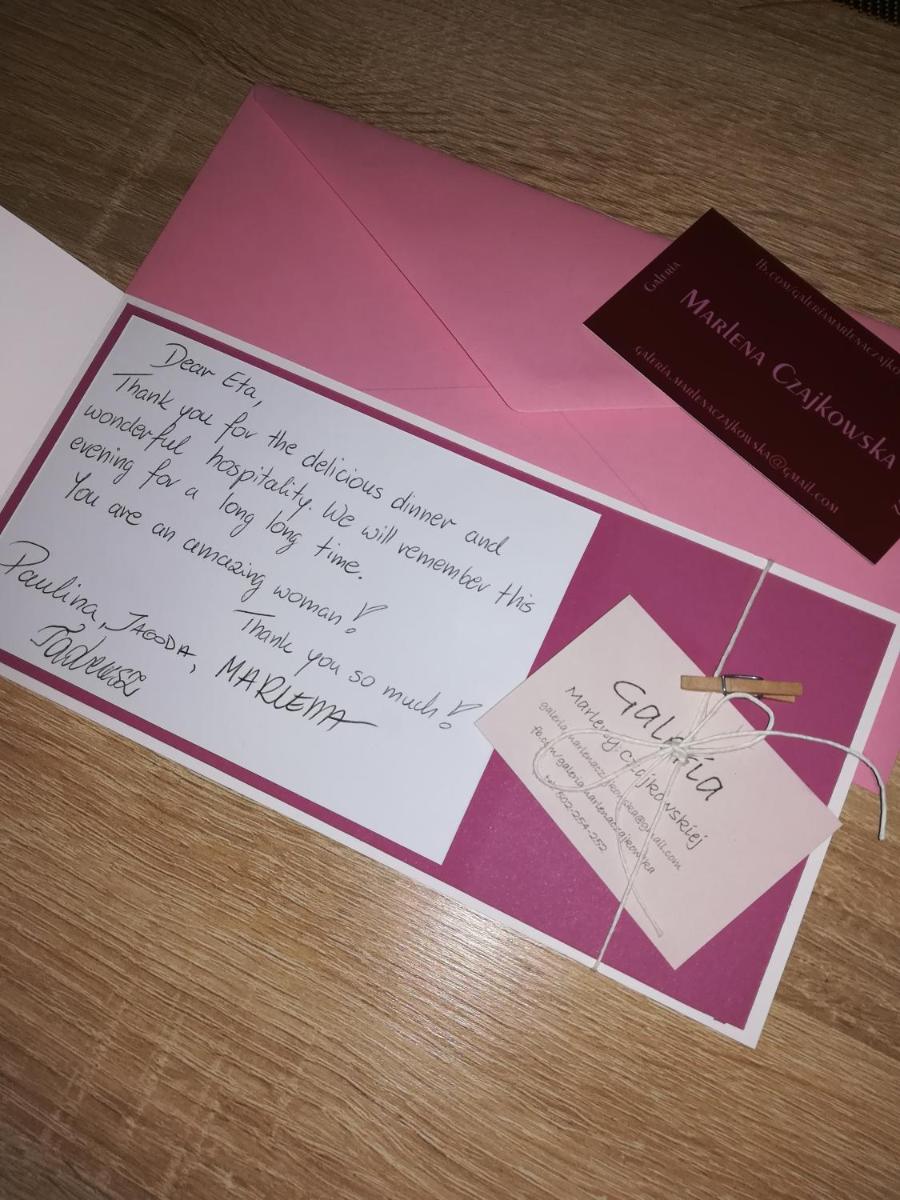 Dear Eta,
Thank you for the delicious dinner and
wonderful hospitality. We will remember this
evening for a long long time.
You are an amazing woman!
Thank you so much!
Paulina, JAGODA, MARLENA
Tadeusz
GALERIA
MARLENA CZAJKOWSKA
GALERIA.MARLENACZAJKOWSKA@GMAIL.COM
Galeria
Marleny Czajkowskiej
galeria.marlenaczajkowska@gmail.com
fb.com/galeriamarlenaczajkowska
tel. 502-254-252